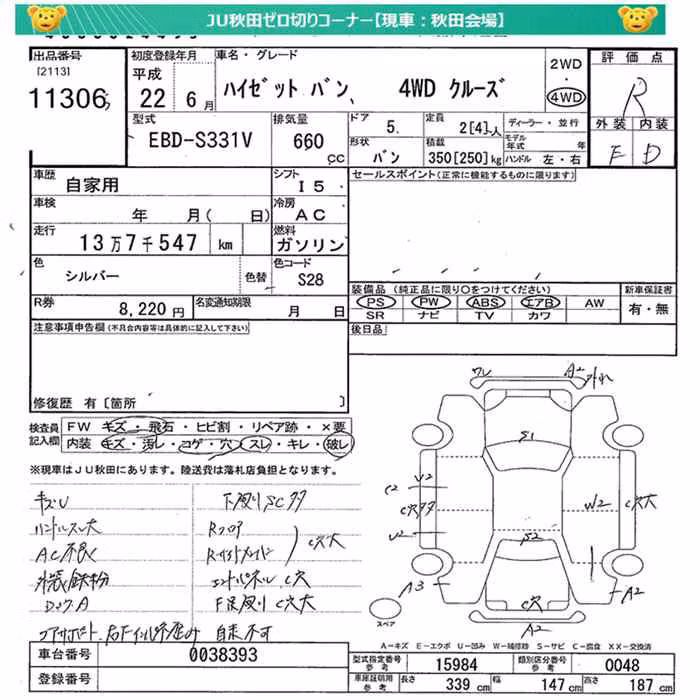 JU秋田ゼロ切りコーナー【現車：秋田会場】
出品番号
[2113]
11306
初度登録年月
平成
22 6月
車名・グレード
ハイゼット バン、 4WD クルーズ
2WD
・
4WD
評価点
R
外装 内装
E D
型式
EBD-S331V
排気量
660
CC
ドア
5.
定員
2[4]人
ディーラー・並行
モデル年式 年
形状
バン
積載
350[250]kg
ハンドル 左・右
車歴
自家用
シフト
I5
車検
年 月( 日)
冷房
AC
走行
13万7千547 km
燃料
ガソリン
色
シルバー
色替
色コード
S28
R券
8,220円
名変通知期限
月 日
セールスポイント(正常に機能するものに限ります)
装備品 (純正品に限り○をつけてください)
PS PW ABS エアB AW
SR ナビ TV カワ
新車保証書
有・無
後日品
注意事項申告欄(不具合内容等は具体的に記入して下さい)
修復歴 有[箇所 ]
検査員
記入欄
FW キズ・飛石・ヒビ割・リペア跡・×要
内装 キズ・汚レ・コゲ・穴・スレ・キレ・破レ
※現車はJU秋田にあります。陸送費は落札店負担となります。
キズU
ハンドルスレ大
AC不良
外装鉄粉
下廻りSC
Rフロア
C穴大
エンドパネルC穴
F足廻りC穴大
自走不可
ワレ
A2
S1
C2
U2
C穴
U2
W2
C穴大
S2
A3
C穴
A2
A2
スペア
A－キズ E－エクボ U－凹み W－補修跡 S－サビ C－腐食 XX－交換済
車台番号
0038393
登録番号
型式指定番号
参考
15984
類別区分番号
参考
0048
車庫証明用
参考
長さ
339 cm
幅
147 cm
高さ
187 cm